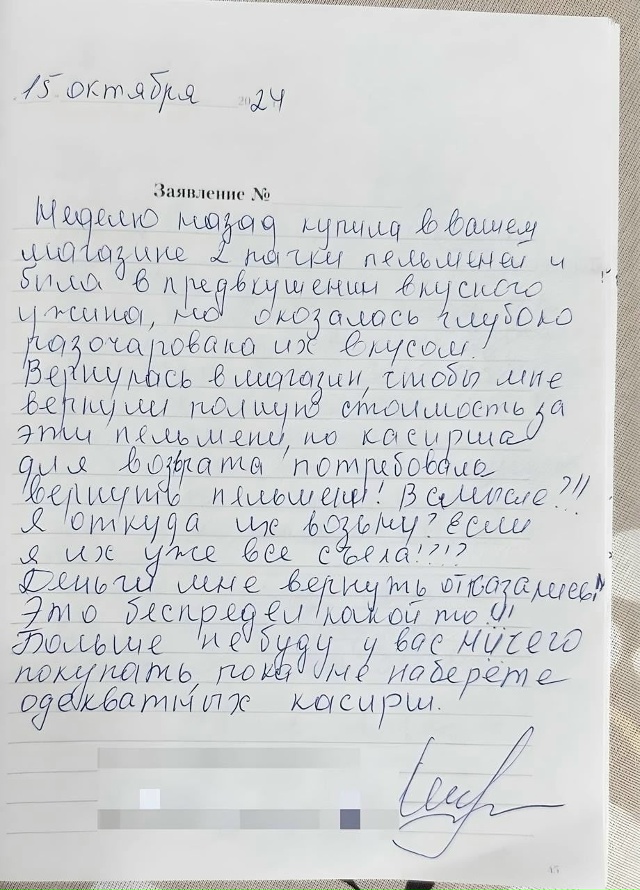 15 октября 2024
Заявление №
Неделю назад купила в вашем
магазине 2 пачки пельменей и
была в предвкушении вкусного
ужина, но окозалась глубоко
разочарована их вкусом.
Вернулась в магазин, чтобы мне
вернули полную стоимость за
эти пельмени, но касирша
для возврата потребовала
вернуть пельмени! В смысле?!!
я откуда их возьму? если
я их уже все съела!?!?
Деньги мне вернуть отказались!
Это беспредел какой то!!!
Больше не буду у вас ничего
покупать, пока не наберёте
одекватных касирш.
45